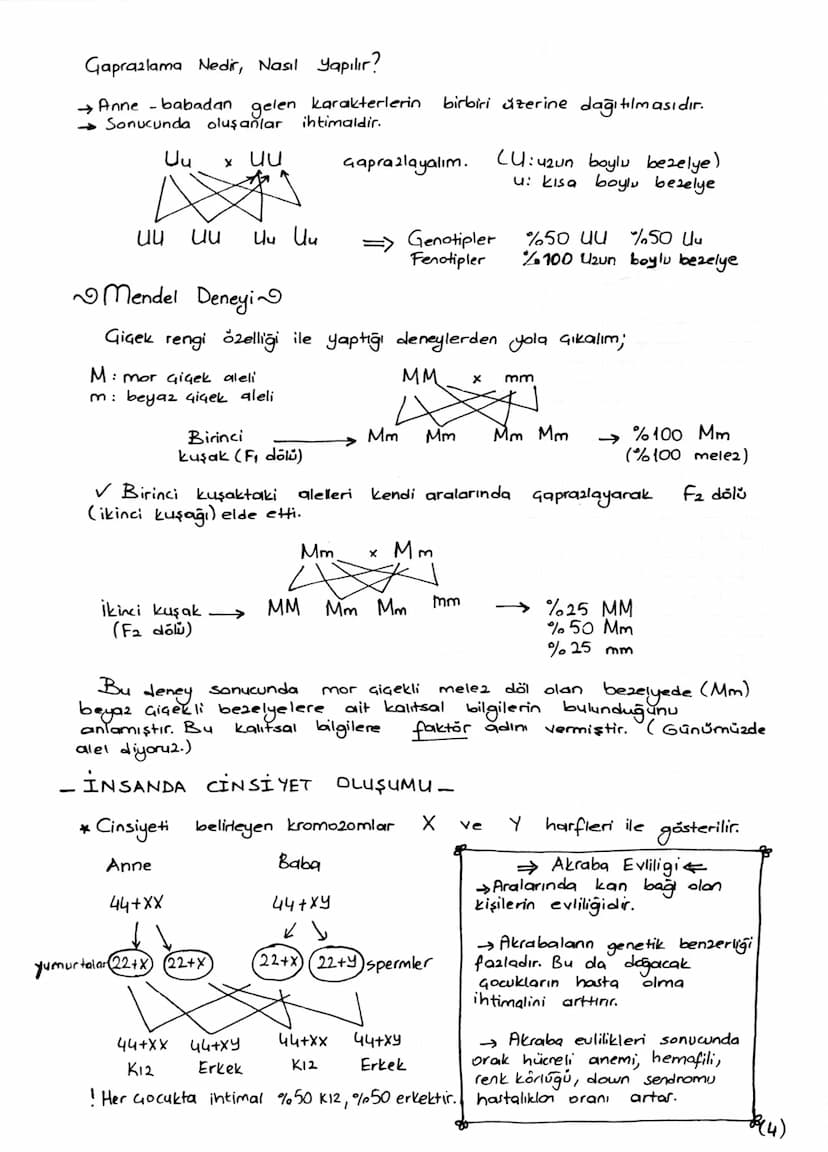 Çaprazlama Nedir, Nasıl Yapılır?
→ Anne - babadan gelen karakterlerin birbiri üzerine dağıtılmasıdır.
→ Sonucunda oluşanlar ihtimaldir.
Uu x UU Çaprazlayalım. (U: uzun boylu bezelye)
u: kısa boylu bezelye
UU UU Uu Uu ⇒ Genotipler %50 UU %50 Uu
Fenotipler %100 Uzun boylu bezelye
Mendel Deneyi
Çiçek rengi özelliği ile yaptığı deneylerden yola çıkalım;
M: mor çiçek aleli
m: beyaz çiçek aleli
MM x mm
Birinci kuşak (F1 dölü) → Mm Mm Mm Mm → %100 Mm
(%100 melez)
✓ Birinci kuşaktaki alelleri kendi aralarında çaprazlayarak F2 dölü
(ikinci kuşağı) elde etti.
Mm x Mm
İkinci kuşak → MM Mm Mm mm → %25 MM
(F2 dölü) %50 Mm
%25 mm
Bu deney sonucunda mor çiçekli melez döl olan bezelyede (Mm)
beyaz çiçekli bezelyelere ait kalıtsal bilgilerin bulunduğunu
anlamıştır. Bu kalıtsal bilgilere faktör adını vermiştir. (Günümüzde
alel diyoruz.)
- İNSANDA CİNSİYET OLUŞUMU -
* Cinsiyeti belirleyen kromozomlar X ve Y harfleri ile gösterilir.
Anne Baba
44+XX 44+XY
yumurtalar 22+X 22+X 22+X 22+Y spermler
44+XX 44+XY 44+XX 44+XY
Kız Erkek Kız Erkek
! Her çocukta ihtimal %50 kız, %50 erkektir.
⇒ Akraba Evliliği ⇐
→ Aralarında kan bağı olan
kişilerin evliliğidir.
→ Akrabaların genetik benzerliği
fazladır. Bu da doğacak
çocukların hasta olma
ihtimalini arttırır.
→ Akraba evlilikleri sonucunda
orak hücreli anemi, hemofili,
renk körlüğü, down sendromu
hastalıkları oranı artar.
(4)